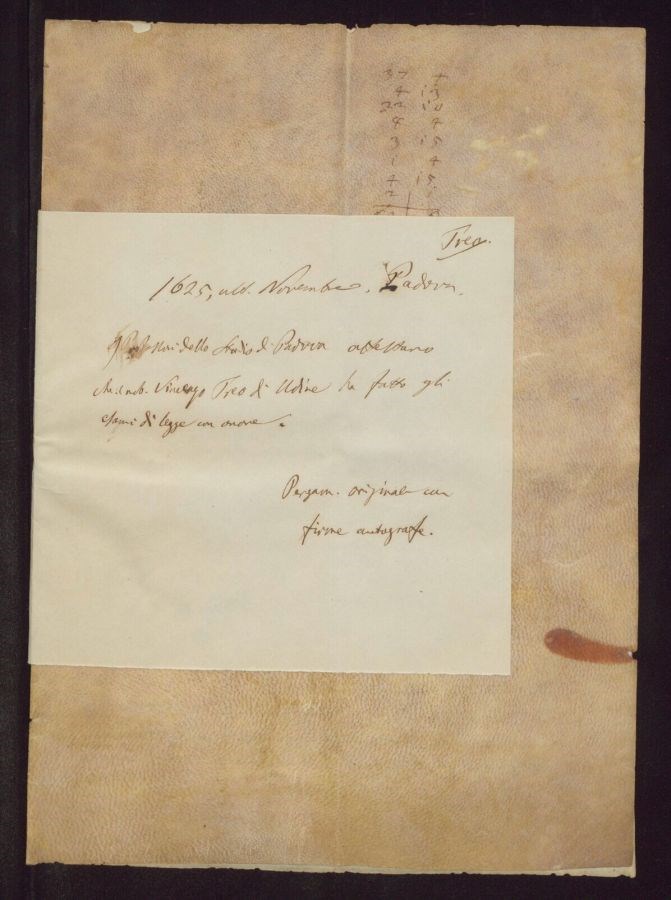 37 4
4 13
22 10
4 4
3 15
1 4
4 15
2 1
Treo.
1625, ult. Novembre. Padova.
dello Studio di Padova attestano
che il nob. Vincenzo Treo di Udine ha fatto gli
esami di legge con onore.
Pergam. originale con
firme autografe.